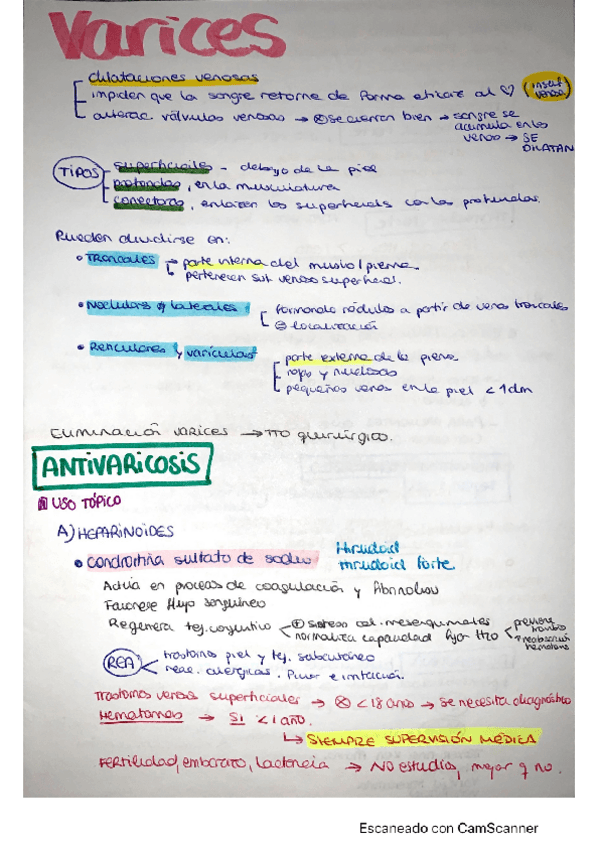 Varices
dilataciones venosas
impiden que la sangre retorne de forma eficaz al ♡ (insuf. venosa)
alterac. válvulas venosas → ⊗ se cierran bien → sangre se
acumula en las
venas → SE
DILATAN
TIPOS
superficiales - debajo de la piel
profundas, en la musculatura
conectoras, enlazan las superficials con las profundas.
Pueden dividirse en:
• TRONCALES → parte interna del muslo/pierna.
pertenecen sist. venoso superficial.
• Nodulares y laterales
formando nódulos a partir de venas troncales
⊜ localización
• Reticulares y varículas
parte externa de la pierna
rojas y
pequeñas venas en la piel < 1dm
Eliminación varices → TTO quirúrgico.
ANTIVARICOSIS
USO TÓPICO
A) HEPARINOIDES
• Condroitina sulfato de sodio
Hirudoid
Hirudoid forte
Actúa en procesos de coagulación y fibrinolisis
Favorece flujo sanguíneo
Regenera tej. conjuntivo
⊕ síntesis cel. mesenquimales
normaliza capacidad fijar H2O
previene trombos
↑ reabsorción
hematomas
REA
trastorno piel y tej. subcutáneo
reac. alérgicas. Picor e irritación.
Trastornos venosos superficiales → ⊗ < 18 años → se necesita diagnóstico
Hematomas → SI < 1 año.
↳ SIEMPRE SUPERVISIÓN MÉDICA
Fertilidad, embarazo, lactancia → No estudios, mejor q no.
Escaneado con CamScanner